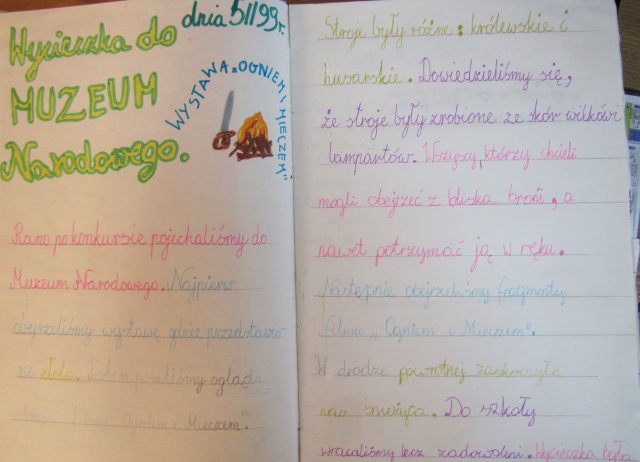 Wycieczka do
dnia 5 II 99r.
MUZEUM
Narodowego.
WYSTAWA „OGNIEM I MIECZEM"
Rano po konkursie pojechaliśmy do
Muzeum Narodowego. Najpierw
obejrzeliśmy wystawę gdzie przedstawio
no złoto. Potem poszliśmy ogląda
Ogniem i Mieczem".
Stroje były różne: królewskie i
husarskie. Dowiedzieliśmy się,
że stroje były zrobione ze skór wilków i
lampartów. Wszyscy, którzy chcieli
mogli obejrzeć z bliska broń, a
nawet potrzymać ją w ręku.
Następnie obejrzeliśmy fragmenty
filmu „Ogniem i Mieczem".
W drodze powrotnej zaskoczyła
nas śnieżyca. Do szkoły
wracaliśmy lecz zadowoleni. Wycieczka była